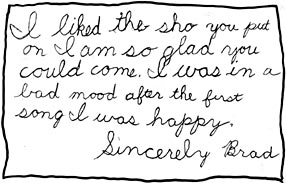 I liked the sho you put
on I am so glad you
could come. I was in a
bad mood after the first
song I was happy.
Sincerely Brad